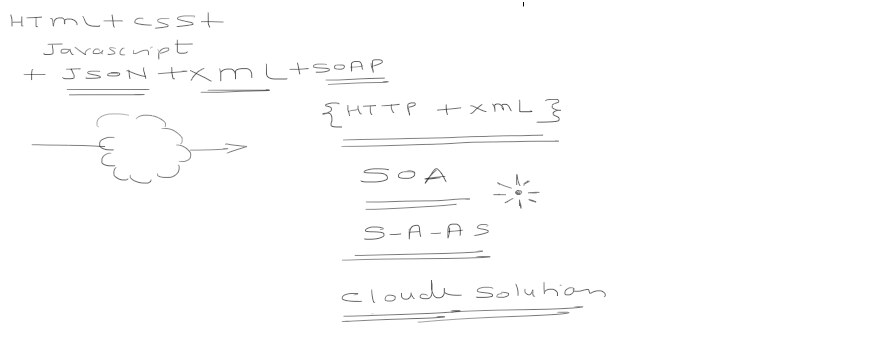 HTML + CSS +
Javascript
+ JSON + XML + SOAP
{HTTP + XML}
SOA
S-A-AS
Cloude Solution